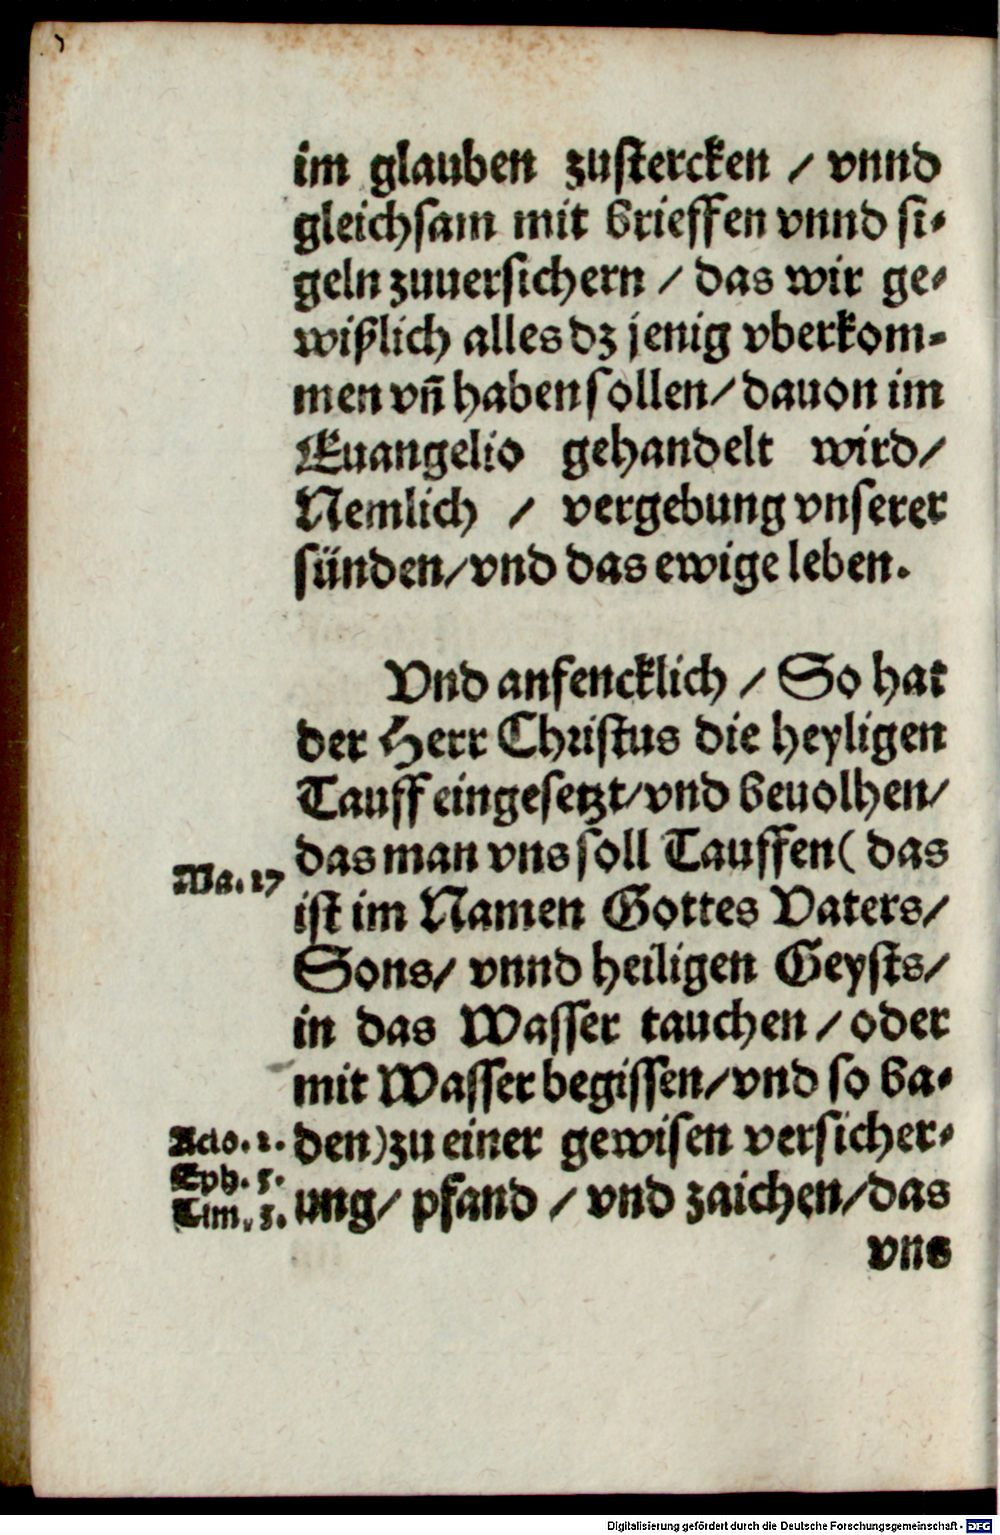 im glauben zustercken / vnnd
gleichsam mit brieffen vnnd si-
geln zuuersichern / das wir ge-
wißlich alles dz jenig vberkom-
men vñ haben sollen / dauon im
Euangelio gehandelt wird /
Nemlich / vergebung vnserer
sünden / vnd das ewige leben.
Vnd anfencklich / So hat
der Herr Christus die heyligen
Tauff eingesetzt / vnd beuolhen /
das man vns soll Tauffen ( das
Ma. 27
ist im Namen Gottes Vaters /
Sons / vnnd heiligen Geysts /
in das Wasser tauchen / oder
mit Wasser begissen / vnd so ba-
Acto. 2.
den ) zu einer gewisen versicher-
Eph. 5.
Tim. 3.
ung / pfand / vnd zaichen / das
vns
Digitalisierung gefördert durch die Deutsche Forschungsgemeinschaft - DFG